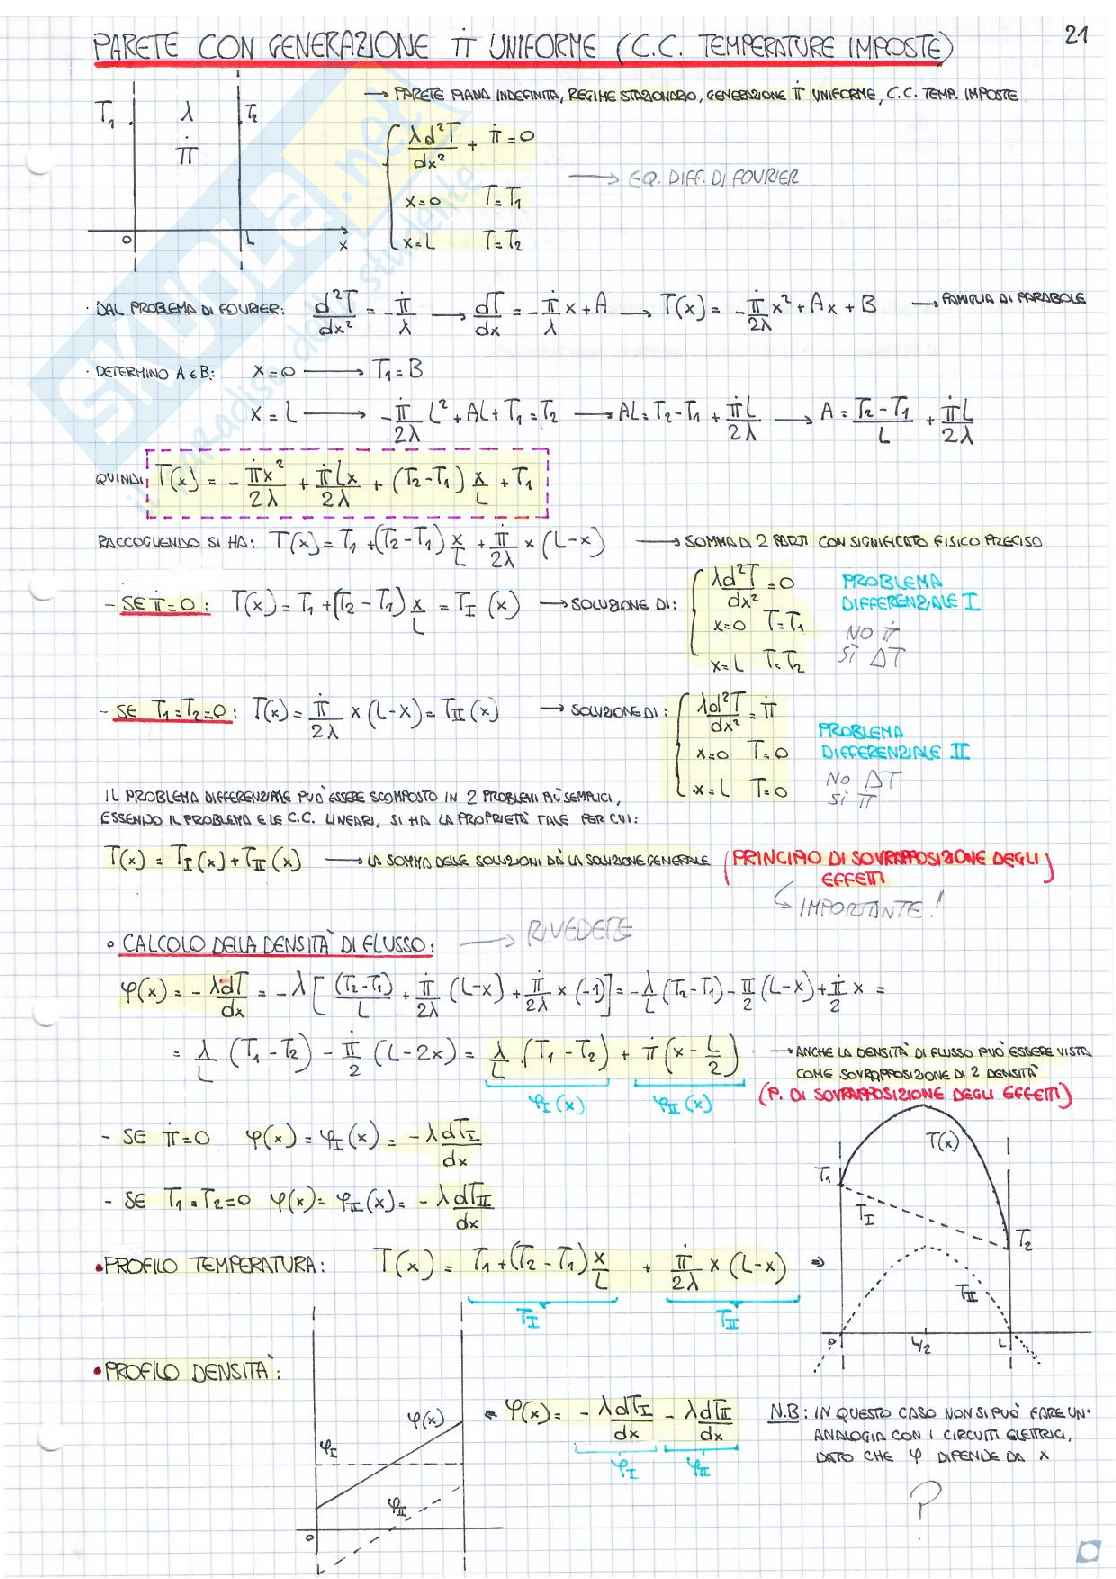 21
PARETE CON GENERAZIONE π̇ UNIFORME (C.C. TEMPERATURE IMPOSTE)
T₁ λ T₂
π̇
0 L x
→ PARETE PIANA INDEFINITA, REGIME STAZIONARIO, GENERAZIONE π̇ UNIFORME, C.C. TEMP. IMPOSTE
{ λd²T/dx² + π̇ = 0
x=0 T=T₁
x=L T=T₂
→ EQ. DIFF. DI FOURIER
· DAL PROBLEMA DI FOURIER: d²T/dx² = -π̇/λ → dT/dx = -π̇/λ x + A → T(x) = -π̇/2λ x² + Ax + B → FAMIGLIA DI PARABOLE
· DETERMINO A E B: x=0 → T₁=B
x=L → -π̇/2λ L² + AL + T₁ = T₂ → AL = T₂-T₁ + π̇L/2λ → A = T₂-T₁/L + π̇L/2λ
QUINDI, T(x) = -π̇x²/2λ + π̇Lx/2λ + (T₂-T₁) x/L + T₁
RACCOGLIENDO SI HA: T(x) = T₁ + (T₂-T₁) x/L + π̇/2λ x (L-x) → SOMMA DI 2 PARTI CON SIGNIFICATO FISICO PRECISO
- SE π̇=0: T(x) = T₁ + (T₂-T₁) x/L = T_I (x) → SOLUZIONE DI: { λd²T/dx² = 0
x=0 T=T₁
x=L T=T₂
PROBLEMA
DIFFERENZIALE I
NO π̇
SÌ ΔT
- SE T₁=T₂=0: T(x) = π̇/2λ x (L-x) = T_II (x) → SOLUZIONE DI: { λd²T/dx² = π̇
x=0 T=0
x=L T=0
PROBLEMA
DIFFERENZIALE II
NO ΔT
SÌ π̇
IL PROBLEMA DIFFERENZIALE PUÒ ESSERE SCOMPOSTO IN 2 PROBLEMI PIÙ SEMPLICI,
ESSENDO IL PROBLEMA E LE C.C. LINEARI, SI HA LA PROPRIETÀ TALE PER CUI:
T(x) = T_I (x) + T_II (x) → LA SOMMA DELLE SOLUZIONI DÀ LA SOLUZIONE GENERALE (PRINCIPIO DI SOVRAPPOSIZIONE DEGLI
EFFETTI)
↳ IMPORTANTE!
• CALCOLO DELLA DENSITÀ DI FLUSSO: → RIVEDERE
φ(x) = -λdT/dx = -λ [ (T₂-T₁)/L + π̇/2λ (L-x) + π̇/2λ x (-1) ] = -λ/L (T₂-T₁) - π̇/2 (L-x) + π̇/2 x =
= λ/L (T₁-T₂) - π̇/2 (L-2x) = λ/L (T₁-T₂) + π̇ (x - L/2)
φ_I (x) φ_II (x)
→ ANCHE LA DENSITÀ DI FLUSSO PUÒ ESSERE VISTA
COME SOVRAPPOSIZIONE DI 2 DENSITÀ
(P. DI SOVRAPPOSIZIONE DEGLI EFFETTI)
- SE π̇=0 φ(x) = φ_I (x) = -λdT_I/dx
- SE T₁=T₂=0 φ(x) = φ_II (x) = -λdT_II/dx
T₁ T(x)
T_I
T₂
T_II
0 L/2 L
• PROFILO TEMPERATURA: T(x) = T₁ + (T₂-T₁) x/L + π̇/2λ x (L-x) ⇒
T_I T_II
• PROFILO DENSITÀ:
φ(x)
φ_I
φ_II
0
φ(x) = -λdT_I/dx - λdT_II/dx
φ_I φ_II
N.B: IN QUESTO CASO NON SI PUÒ FARE UN'
ANALOGIA CON I CIRCUITI ELETTRICI,
DATO CHE φ DIPENDE DA x
?